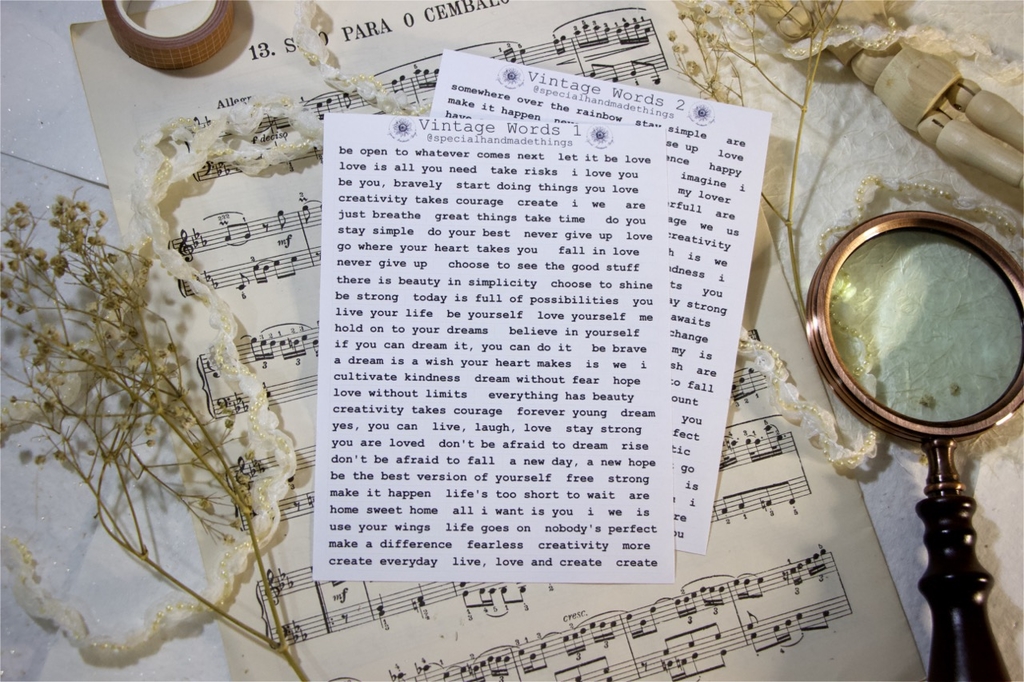 13. S PARA O CEMBALO
Allegr
deciso
mf
mf
cresc.
Vintage Words 1
@specialhandmadethings
be open to whatever comes next let it be love
love is all you need take risks i love you
be you, bravely start doing things you love
creativity takes courage create i we are
just breathe great things take time do you
stay simple do your best never give up love
go where your heart takes you fall in love
never give up choose to see the good stuff
there is beauty in simplicity choose to shine
be strong today is full of possibilities you
live your life be yourself love yourself me
hold on to your dreams believe in yourself
if you can dream it, you can do it be brave
a dream is a wish your heart makes is we i
cultivate kindness dream without fear hope
love without limits everything has beauty
creativity takes courage forever young dream
yes, you can live, laugh, love stay strong
you are loved don't be afraid to dream rise
don't be afraid to fall a new day, a new hope
be the best version of yourself free strong
make it happen life's too short to wait are
home sweet home all i want is you i we is
use your wings life goes on nobody's perfect
make a difference fearless creativity more
create everyday live, love and create create
Vintage Words 2
@specialhandmadethings
somewhere over the rainbow stay simple are
make it happen se up love
have nce happy
imagine i
my lover
rfull are
age we us
reativity
h is we
dness i
ts you
ay strong
awaits
change
my is
sh are
to fall
ount
you
fect
tic
go
is
i
re
ou